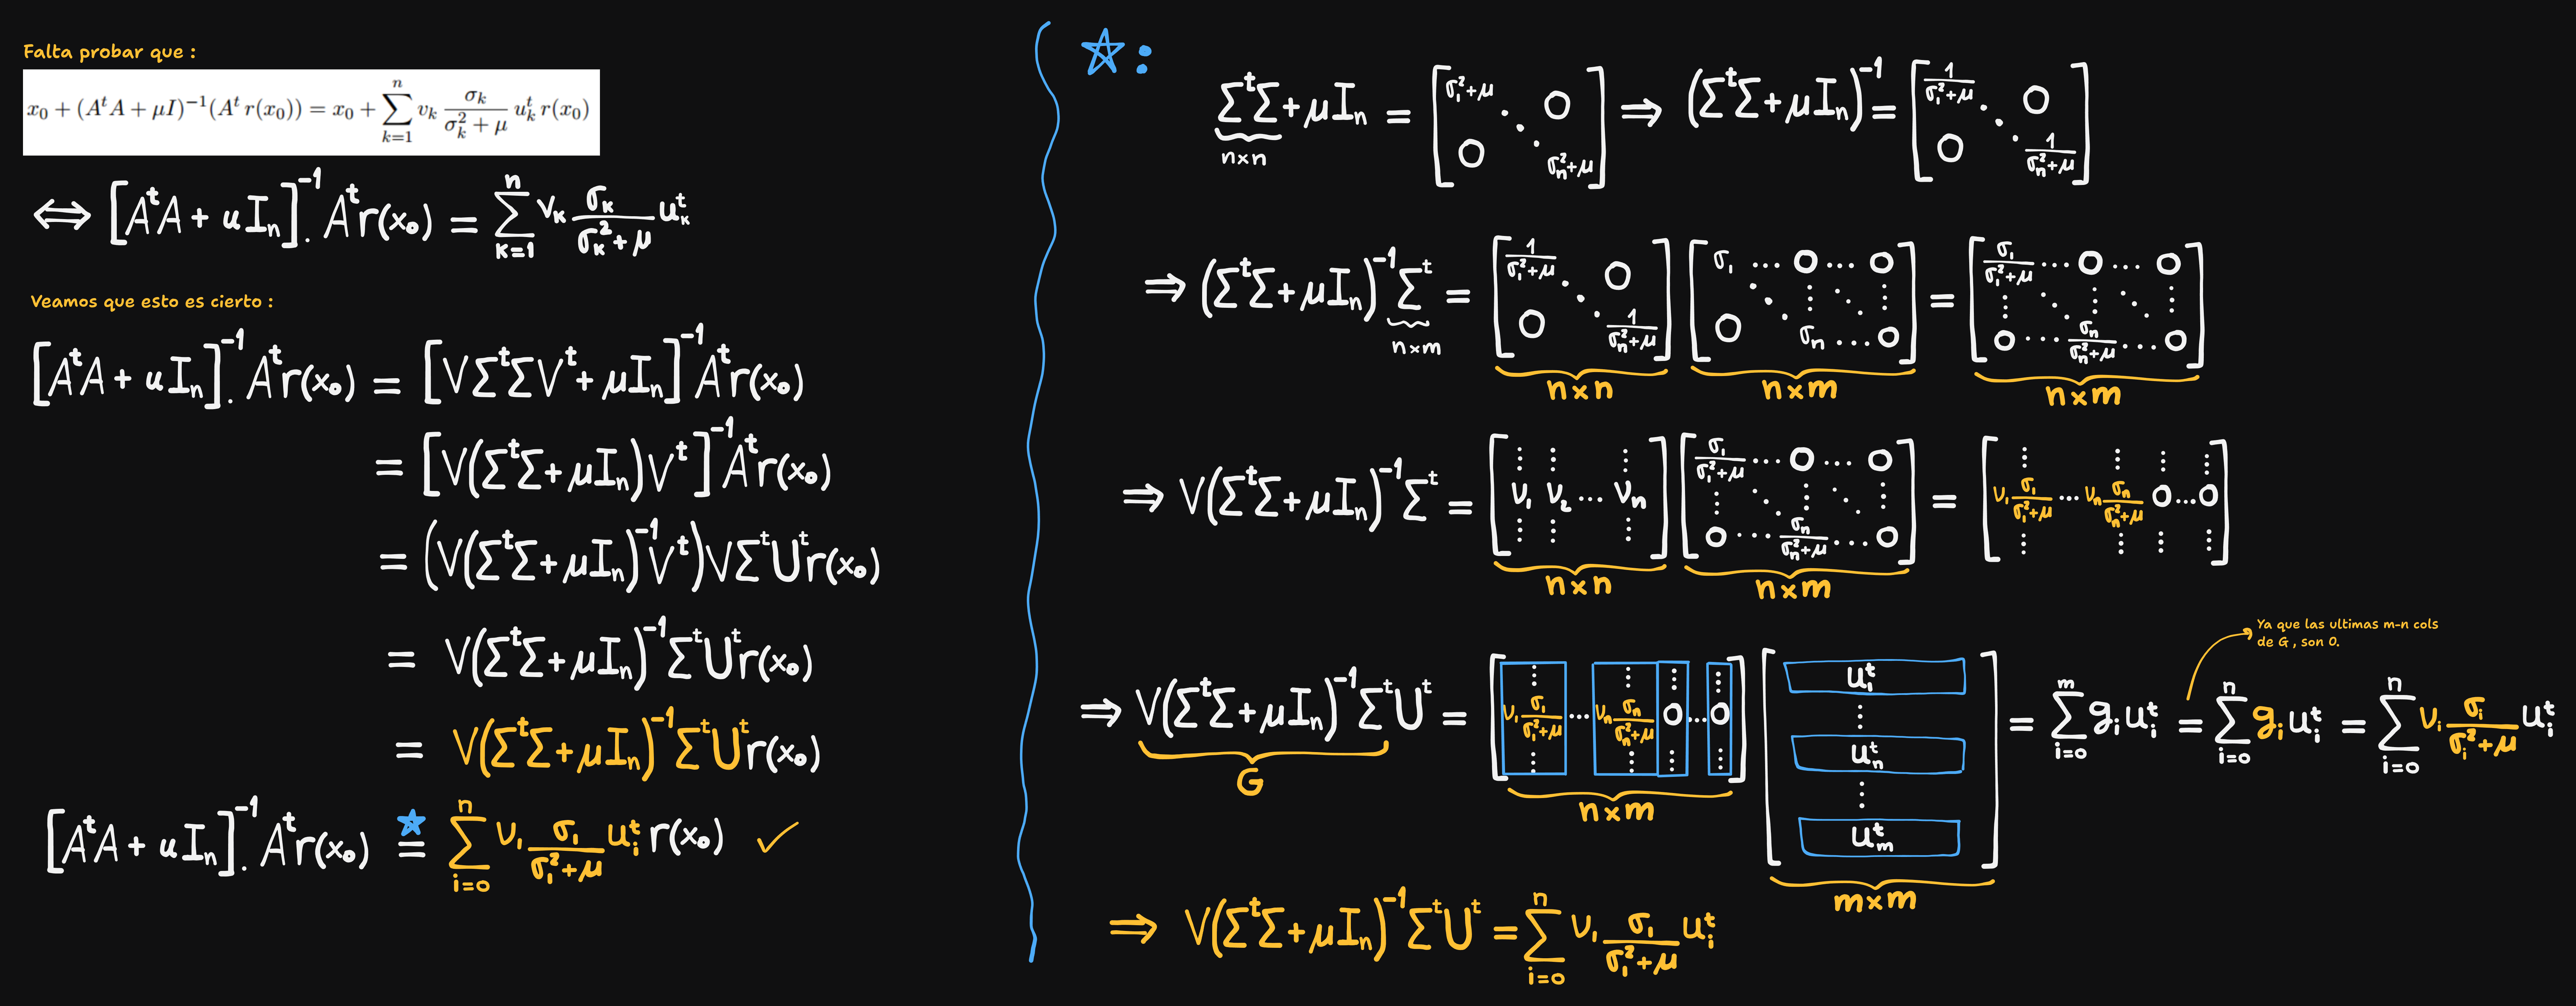 Falta probar que :
x₀ + (AᵗA + μI)⁻¹(Aᵗ r(x₀)) = x₀ + ∑ₖ₌₁ⁿ vₖ σₖ/(σₖ² + μ) uₖᵗ r(x₀)
⟺ [AᵗA + uIₙ]⁻¹. Aᵗr(x₀) = ∑ₖ₌₁ⁿ vₖ σₖ/(σₖ² + μ) uₖᵗ
Veamos que esto es cierto :
[AᵗA + uIₙ]⁻¹. Aᵗr(x₀) = [VΣᵗΣVᵗ + μIₙ]⁻¹Aᵗr(x₀)
= [V(ΣᵗΣ + μIₙ)Vᵗ]⁻¹Aᵗr(x₀)
= (V(ΣᵗΣ + μIₙ)⁻¹Vᵗ)VΣᵗUᵗr(x₀)
= V(ΣᵗΣ + μIₙ)⁻¹ΣᵗUᵗr(x₀)
= V(ΣᵗΣ + μIₙ)⁻¹ΣᵗUᵗr(x₀)
[AᵗA + uIₙ]⁻¹. Aᵗr(x₀) ★= ∑ᵢ₌₀ⁿ v₁ σ₁/(σ₁² + μ) uᵢᵗ r(x₀) ✓
★ :
ΣᵗΣ + μIₙ = [σ₁²+μ ⋱ 0 0 ⋱ σₙ²+μ] ⇒ (ΣᵗΣ + μIₙ)⁻¹ = [1/(σ₁²+μ) ⋱ 0 0 ⋱ 1/(σₙ²+μ)]
n×n
⇒ (ΣᵗΣ + μIₙ)⁻¹Σᵗ = [1/(σ₁²+μ) ⋱ 0 0 ⋱ 1/(σₙ²+μ)] [σ₁ ... 0 ... 0 ⋱ ⋮ ⋱ ⋮ 0 σₙ ... 0] = [σ₁/(σ₁²+μ) ... 0 ... 0 ⋮ ⋱ ⋮ ⋱ ⋮ 0 ... σₙ/(σₙ²+μ) ... 0]
n×m
n×n n×m n×m
⇒ V(ΣᵗΣ + μIₙ)⁻¹Σᵗ = [⋮ ⋮ ⋮ v₁ v₂ ... vₙ ⋮ ⋮ ⋮] [σ₁/(σ₁²+μ) ... 0 ... 0 ⋮ ⋱ ⋮ ⋱ ⋮ 0 ... σₙ/(σₙ²+μ) ... 0] = [⋮ ⋮ ⋮ ⋮ v₁ σ₁/(σ₁²+μ) ... vₙ σₙ/(σₙ²+μ) 0 ... 0 ⋮ ⋮ ⋮ ⋮]
n×n n×m
Ya que las ultimas m-n cols
de G , son 0.
⇒ V(ΣᵗΣ + μIₙ)⁻¹ΣᵗUᵗ = [⋮ ⋮ ⋮ ⋮ v₁ σ₁/(σ₁²+μ) ... vₙ σₙ/(σₙ²+μ) 0 ... 0 ⋮ ⋮ ⋮ ⋮] [u₁ᵗ ⋮ uₙᵗ ⋮ uₘᵗ] = ∑ᵢ₌₀ᵐ gᵢuᵢᵗ = ∑ᵢ₌₀ⁿ gᵢuᵢᵗ = ∑ᵢ₌₀ⁿ vᵢ σᵢ/(σᵢ²+μ) uᵢᵗ
G
n×m
m×m
⇒ V(ΣᵗΣ + μIₙ)⁻¹ΣᵗUᵗ = ∑ᵢ₌₀ⁿ v₁ σ₁/(σ₁²+μ) uᵢᵗ